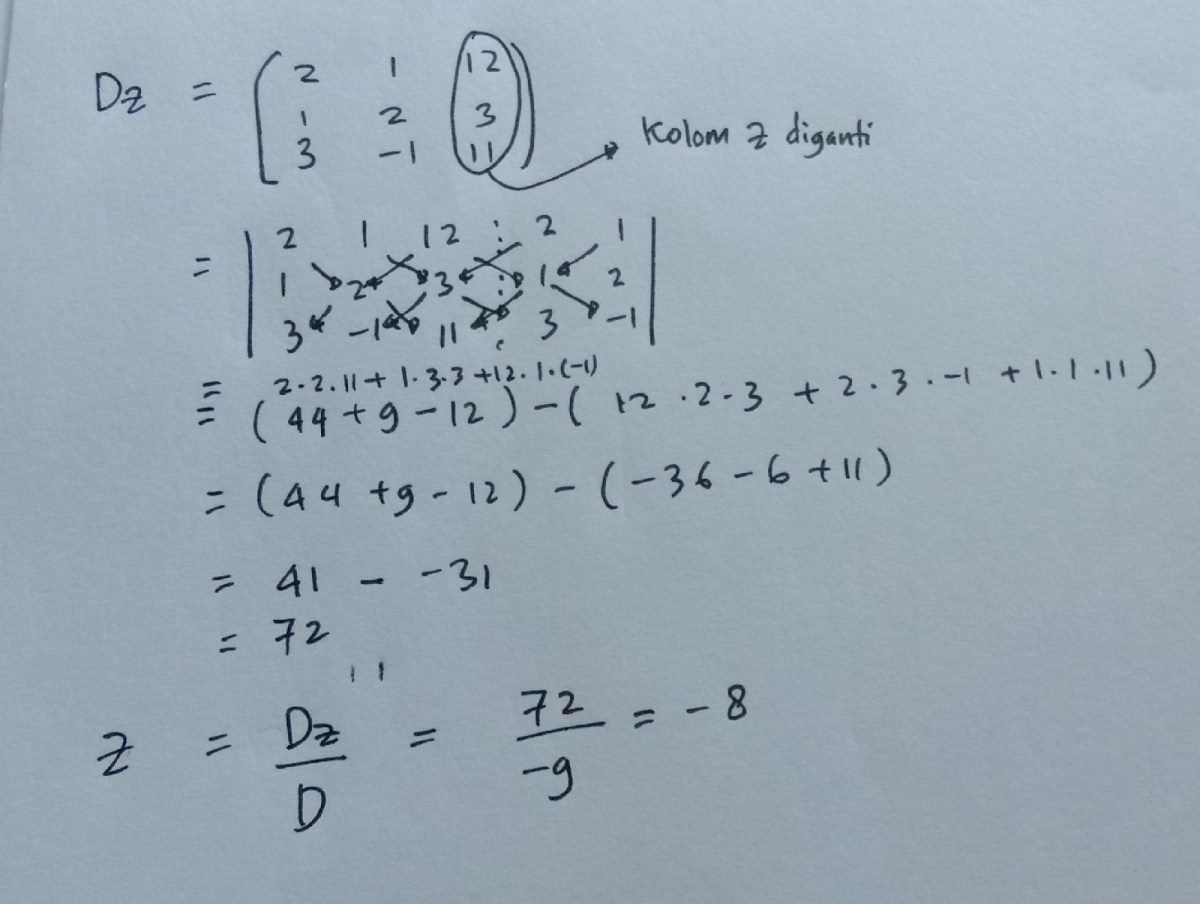 Dz = ( 2 1 12
1 2 3
3 -1 11 ) Kolom z diganti
= | 2 1 12 : 2 1
1 2 3 : 1 2
3 -1 11 : 3 -1 |
= 2·2·11 + 1·3·3 + 12·1·(-1)
= (44 + 9 - 12) - ( 12 · 2 · 3 + 2 · 3 · -1 + 1 · 1 · 11 )
= (44 + 9 - 12) - (-36 - 6 + 11)
= 41 - -31
= 72
z = Dz/D = 72/-9 = -8